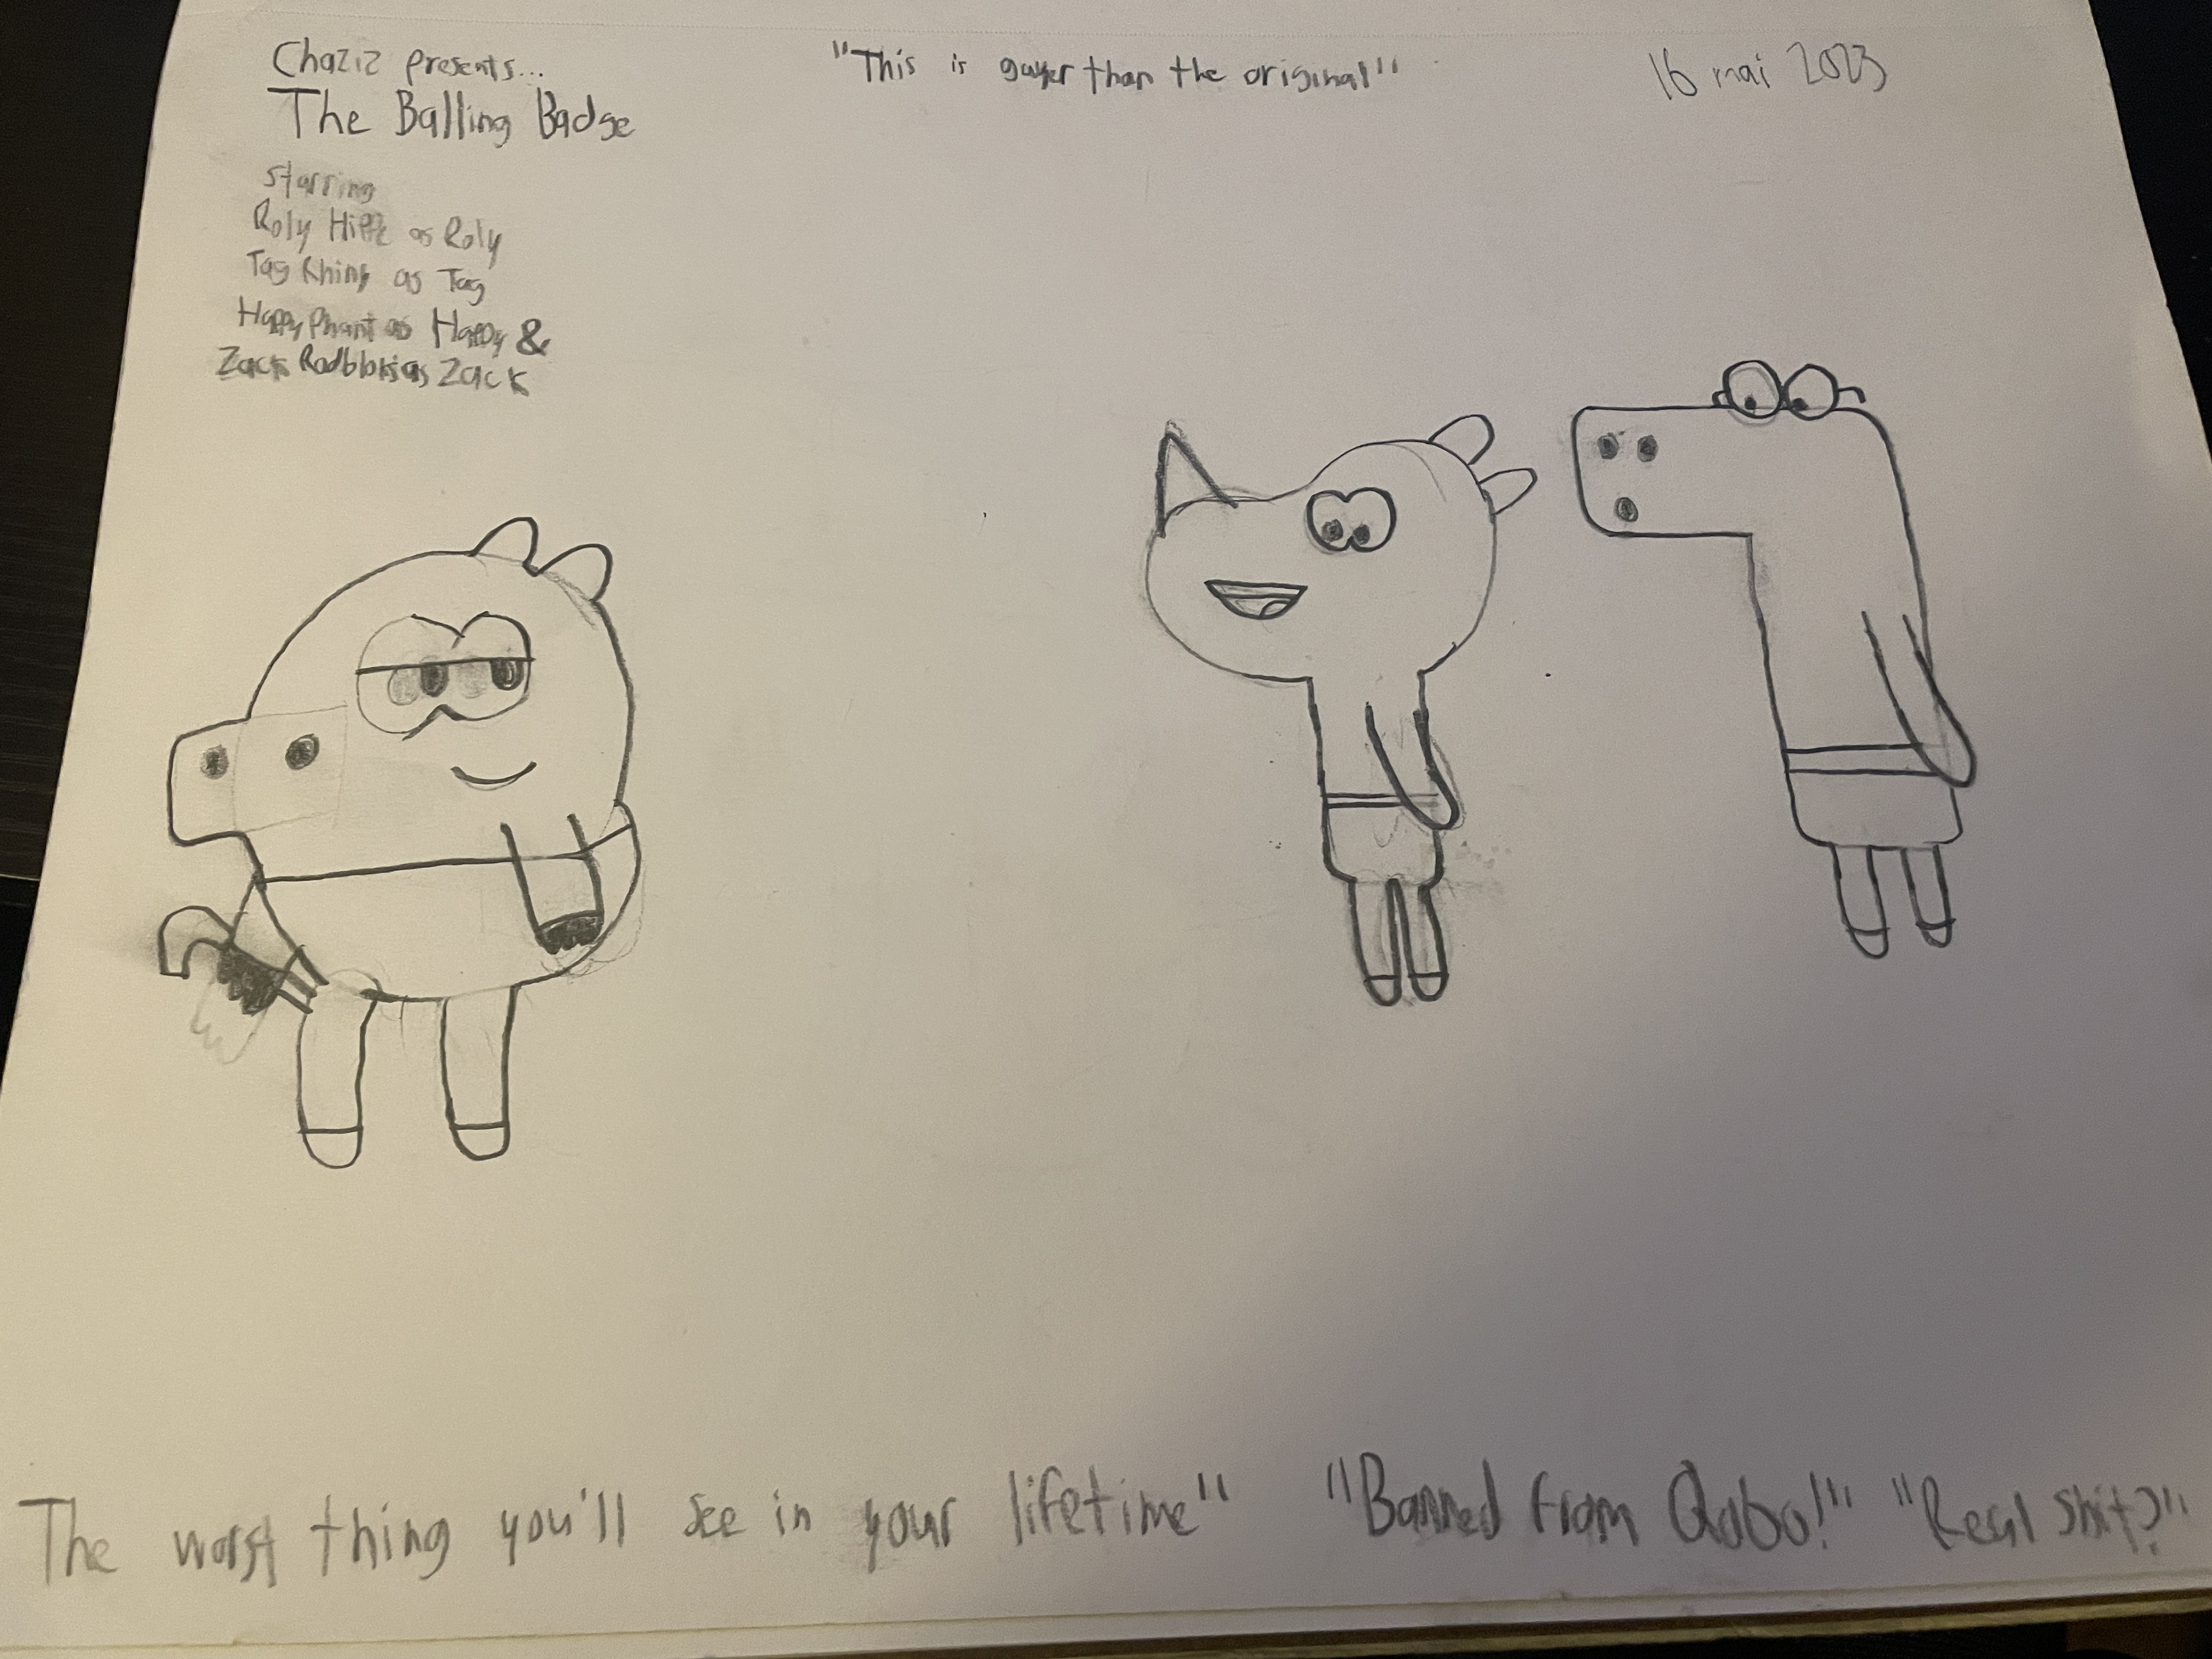 Chaziz presents...
The Balling Badge
"This is gayer than the original"
16 mai 2023
Starring
Roly Hippo as Roly
Tag Rhino as Tag
Happy Phant as Happy &
Zack as Zack
The worst thing you'll see in your lifetime" "Banned from Qobo!" "Real shit?"